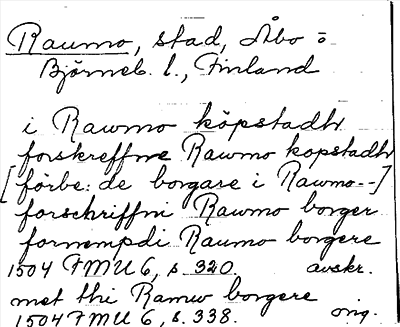 Raumo, stad, Åbo o
Björneb. l., Finland
i Rawmo köpstadh
forskreffne Rawmo kopstadh
[förbe: de borgare i Rawmo--]
forschriffni Rawmo borger
fornempdi Raumo borgere
1504 FMU 6, s. 320. avskr.
met thi Ramw borgere
1504 FMU 6, s. 338. orig.